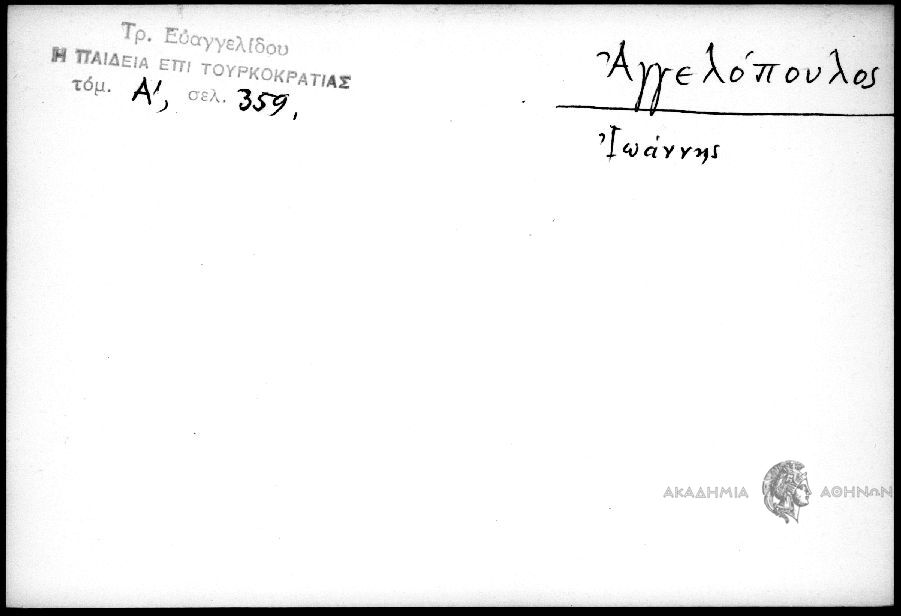 Τρ. Εὐαγγελίδου
Η ΠΑΙΔΕΙΑ ΕΠΙ ΤΟΥΡΚΟΚΡΑΤΙΑΣ
τόμ. Α', σελ. 359,
Ἀγγελόπουλος
Ἰωάννης
ΑΚΑΔΗΜΙΑ ΑΘΗΝΩΝ